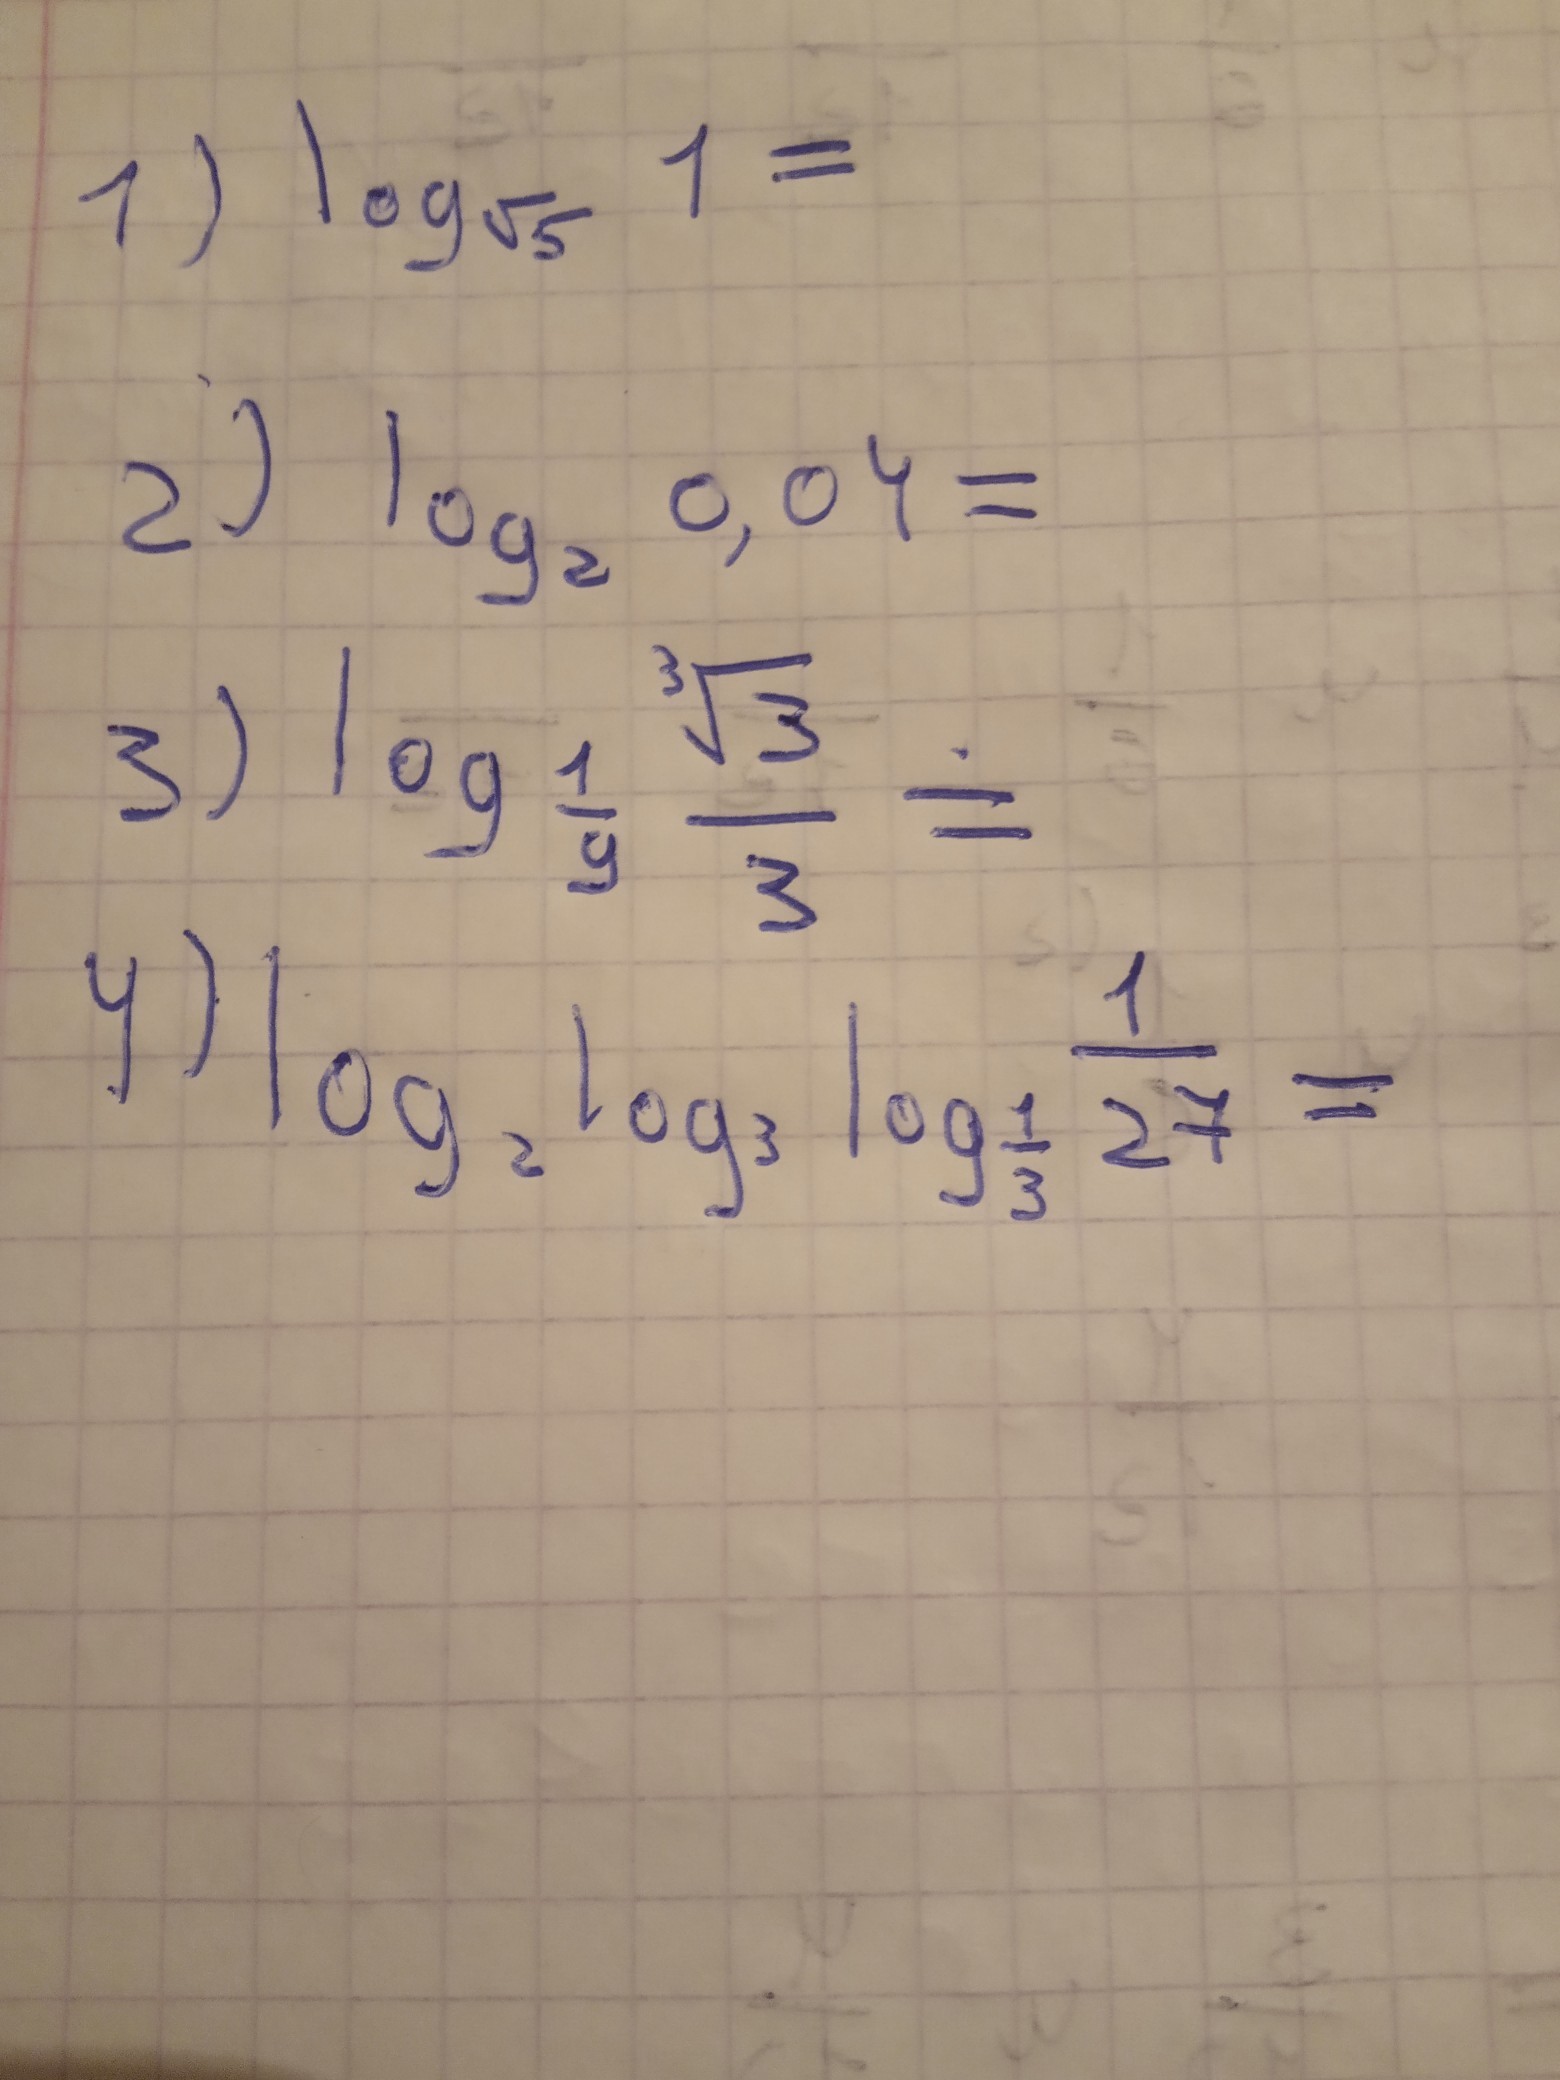 1) log√5 1 =
2) log₂ 0,04 =
3) log 1/9 ∛3/3 =
4) log₂ log₃ log 1/3 1/27 =